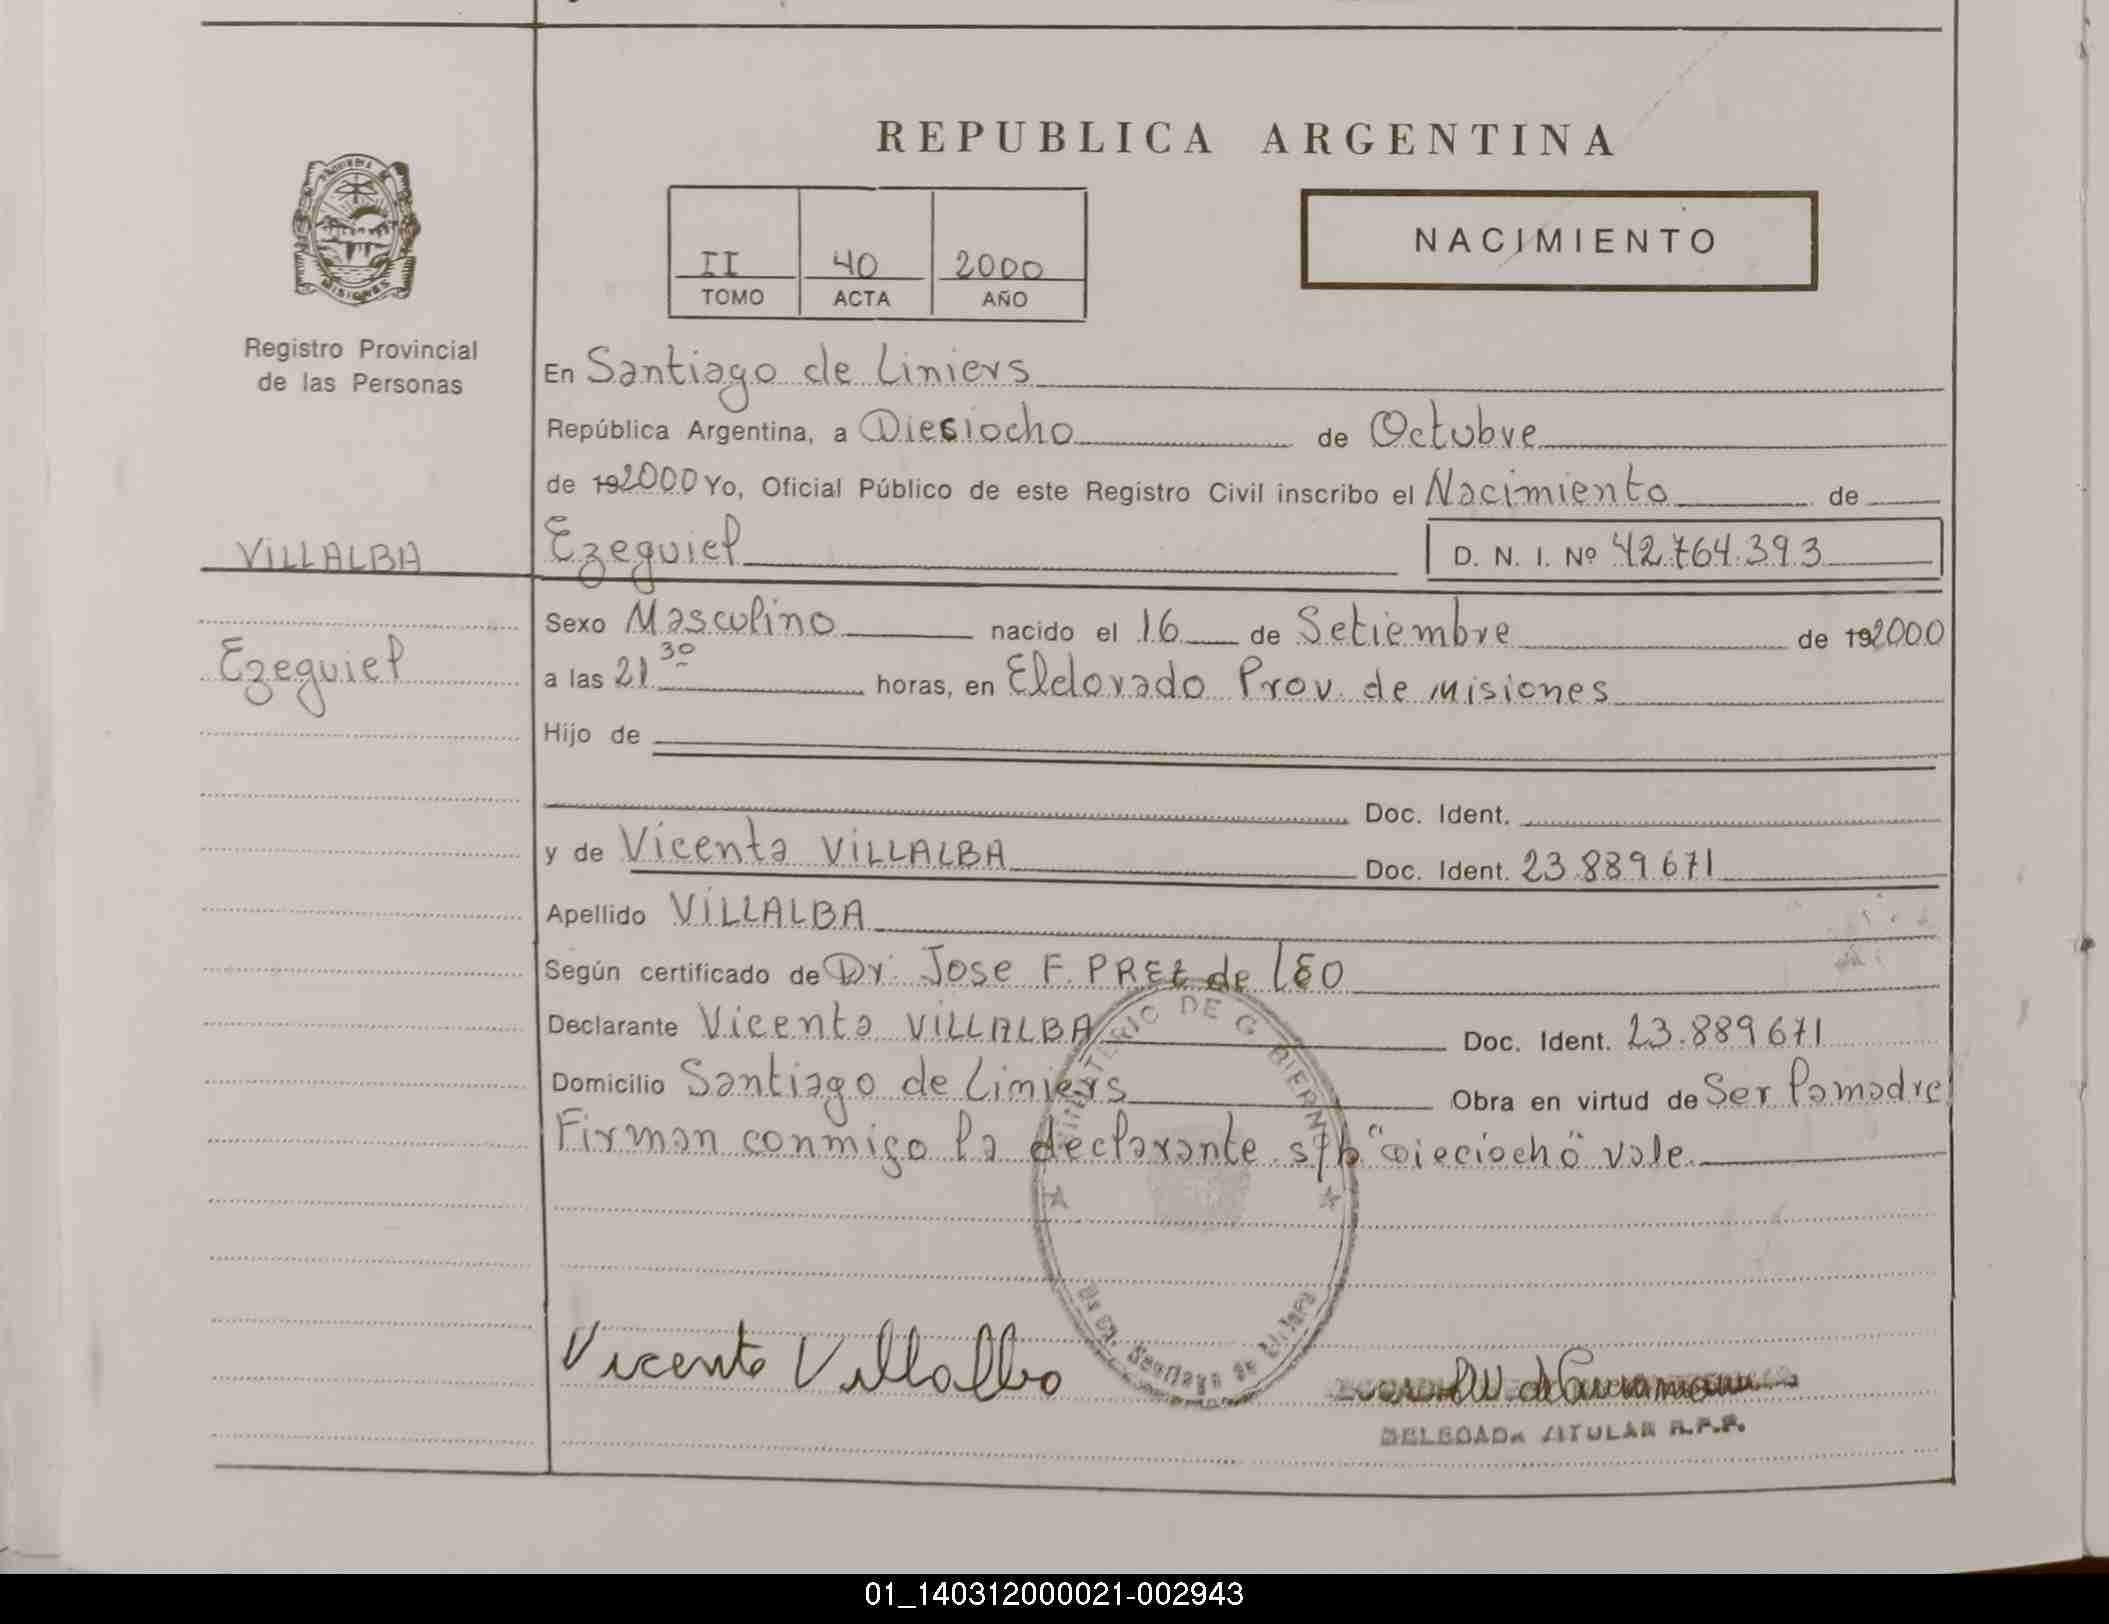 REPUBLICA ARGENTINA
PROVINCIA DE
MISIONES
II 40 2000
TOMO ACTA AÑO
NACIMIENTO
Registro Provincial
de las Personas
En Santiago de Liniers
República Argentina, a Dieciocho de Octubre
de 192000 Yo, Oficial Público de este Registro Civil inscribo el Nacimiento de
VILLALBA
Ezequiel D. N. I. Nº 42.764.393
Sexo Masculino nacido el 16 de Setiembre de 192000
Ezequiel
a las 21 30 horas, en Eldorado Prov. de Misiones
Hijo de
Doc. Ident.
y de Vicenta VILLALBA Doc. Ident. 23.889.671
Apellido VILLALBA
Según certificado de Dr. Jose F. de LEO
Declarante Vicenta VILLALBA Doc. Ident. 23.889.671
Domicilio Santiago de Liniers Obra en virtud de Ser la madre
Firman conmigo la declarante. s/b "dieciocho" vale.
MINISTERIO DE GOBIERNO
Santiago de Liniers
Vicenta Villalba
DELEGADA TITULAR R.P.P.
01_140312000021-002943